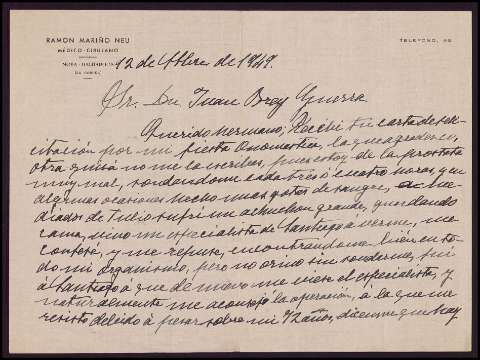 RAMON MARIÑO NEU
MÉDICO-CIRUJANO
TELÉFONO,
12 de Obre de 1949.
Sr. Dn Juan Brey Guerra
Querido hermano; Recibí tu carta de feli-
citación por mi fiesta Onomástica, la que agradezco,
otra quizá no me la escribas, pues estoy de la prostata
muy mal, sondandome cada tres ó cuatro horas, que
algunas ocasiones hecho unas gotas de sangre, me-
diados de Julio sufri un achuchon grande, guardando
cama, vino un especialista de Santiago á verme, me
conforté, y me repuse, encontrándome bien en to-
do mi organismo, pero no orino sin sondarme, fui
á Santiago á que de nuevo me viese el especialista, y
naturalmente me aconsejo la operación, á la que me
resisto debido á pesar sobre mi 72 años, dicenme que hay